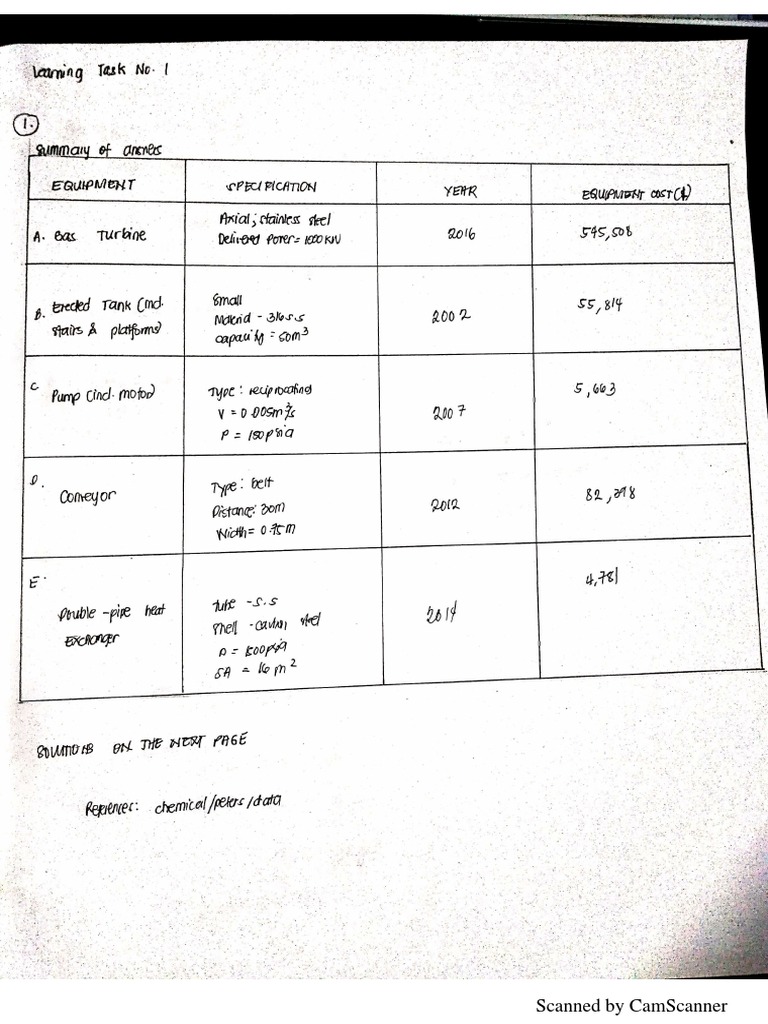 Learning Task No. 1
1.
Summary of answers
EQUIPMENT SPECIFICATION YEAR EQUIPMENT COST ($)
A. Gas Turbine
Axial; stainless steel
Delivered Power = 1000 KW
2016
545,508
B. Erected Tank (incl.
stairs & platforms)
Small
Material - 316 s.s
capacity = 50m³
2002
55,814
C. Pump (incl. motor)
Type: reciprocating
V = 0.005m³/s
P = 150 psia
2007
5,663
D. Conveyor
Type: belt
Distance: 30m
Width = 0.75m
2012
82,
E. Double-pipe heat
Exchanger
Tube - s.s
Shell - carbon steel
P = psia
SA = 16 m²
2014
4,781
SOLUTIONS ON THE NEXT PAGE
References: chemical/peters/data
Scanned by CamScanner